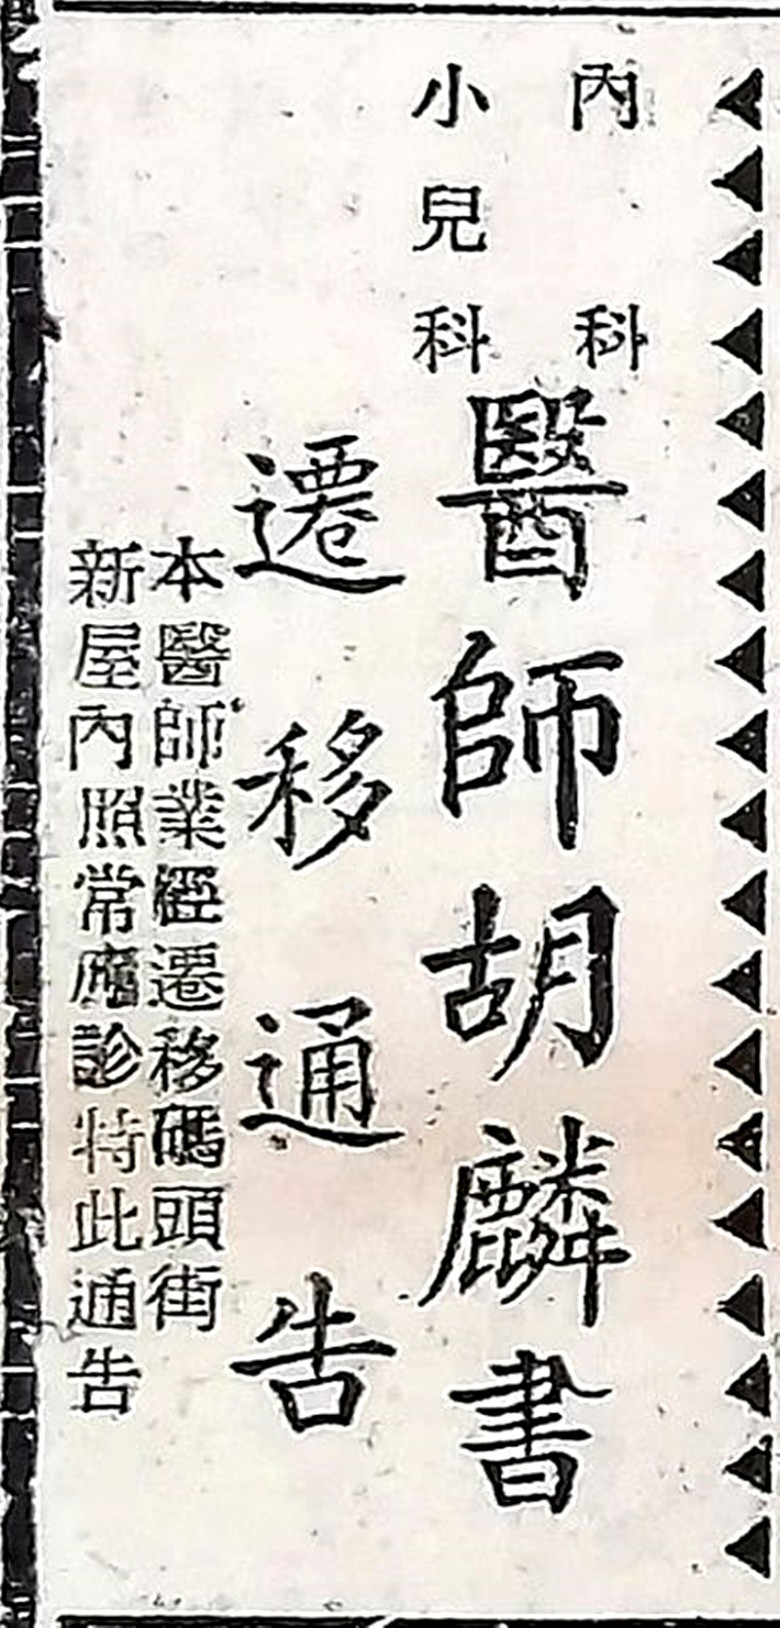 內科
小兒科
醫師胡麟書
遷移通告
本醫師業經遷移碼頭街
新屋內照常應診特此通告